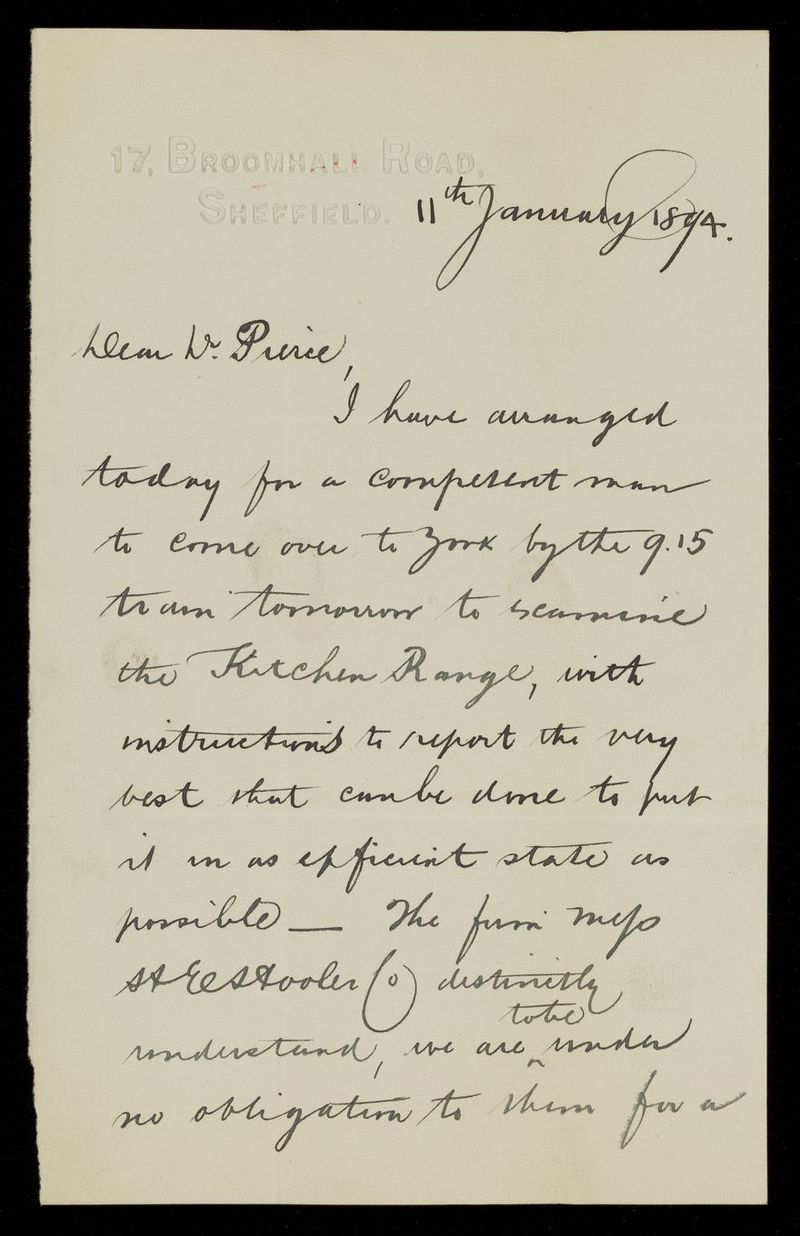 17, BROOMHALL ROAD,
SHEFFIELD.
11th January 1894.
Dear Dr. Pierce,
I have arranged
today for a competent man
to come over to York by the 9.15
train tomorrow to examine
the Kitchen Range, with
instructions to report the very
best that can be done to put
it in as efficient state as
possible — The firm Mess
distinctly
to be
understand, we are ^ under
no obligation to them for a